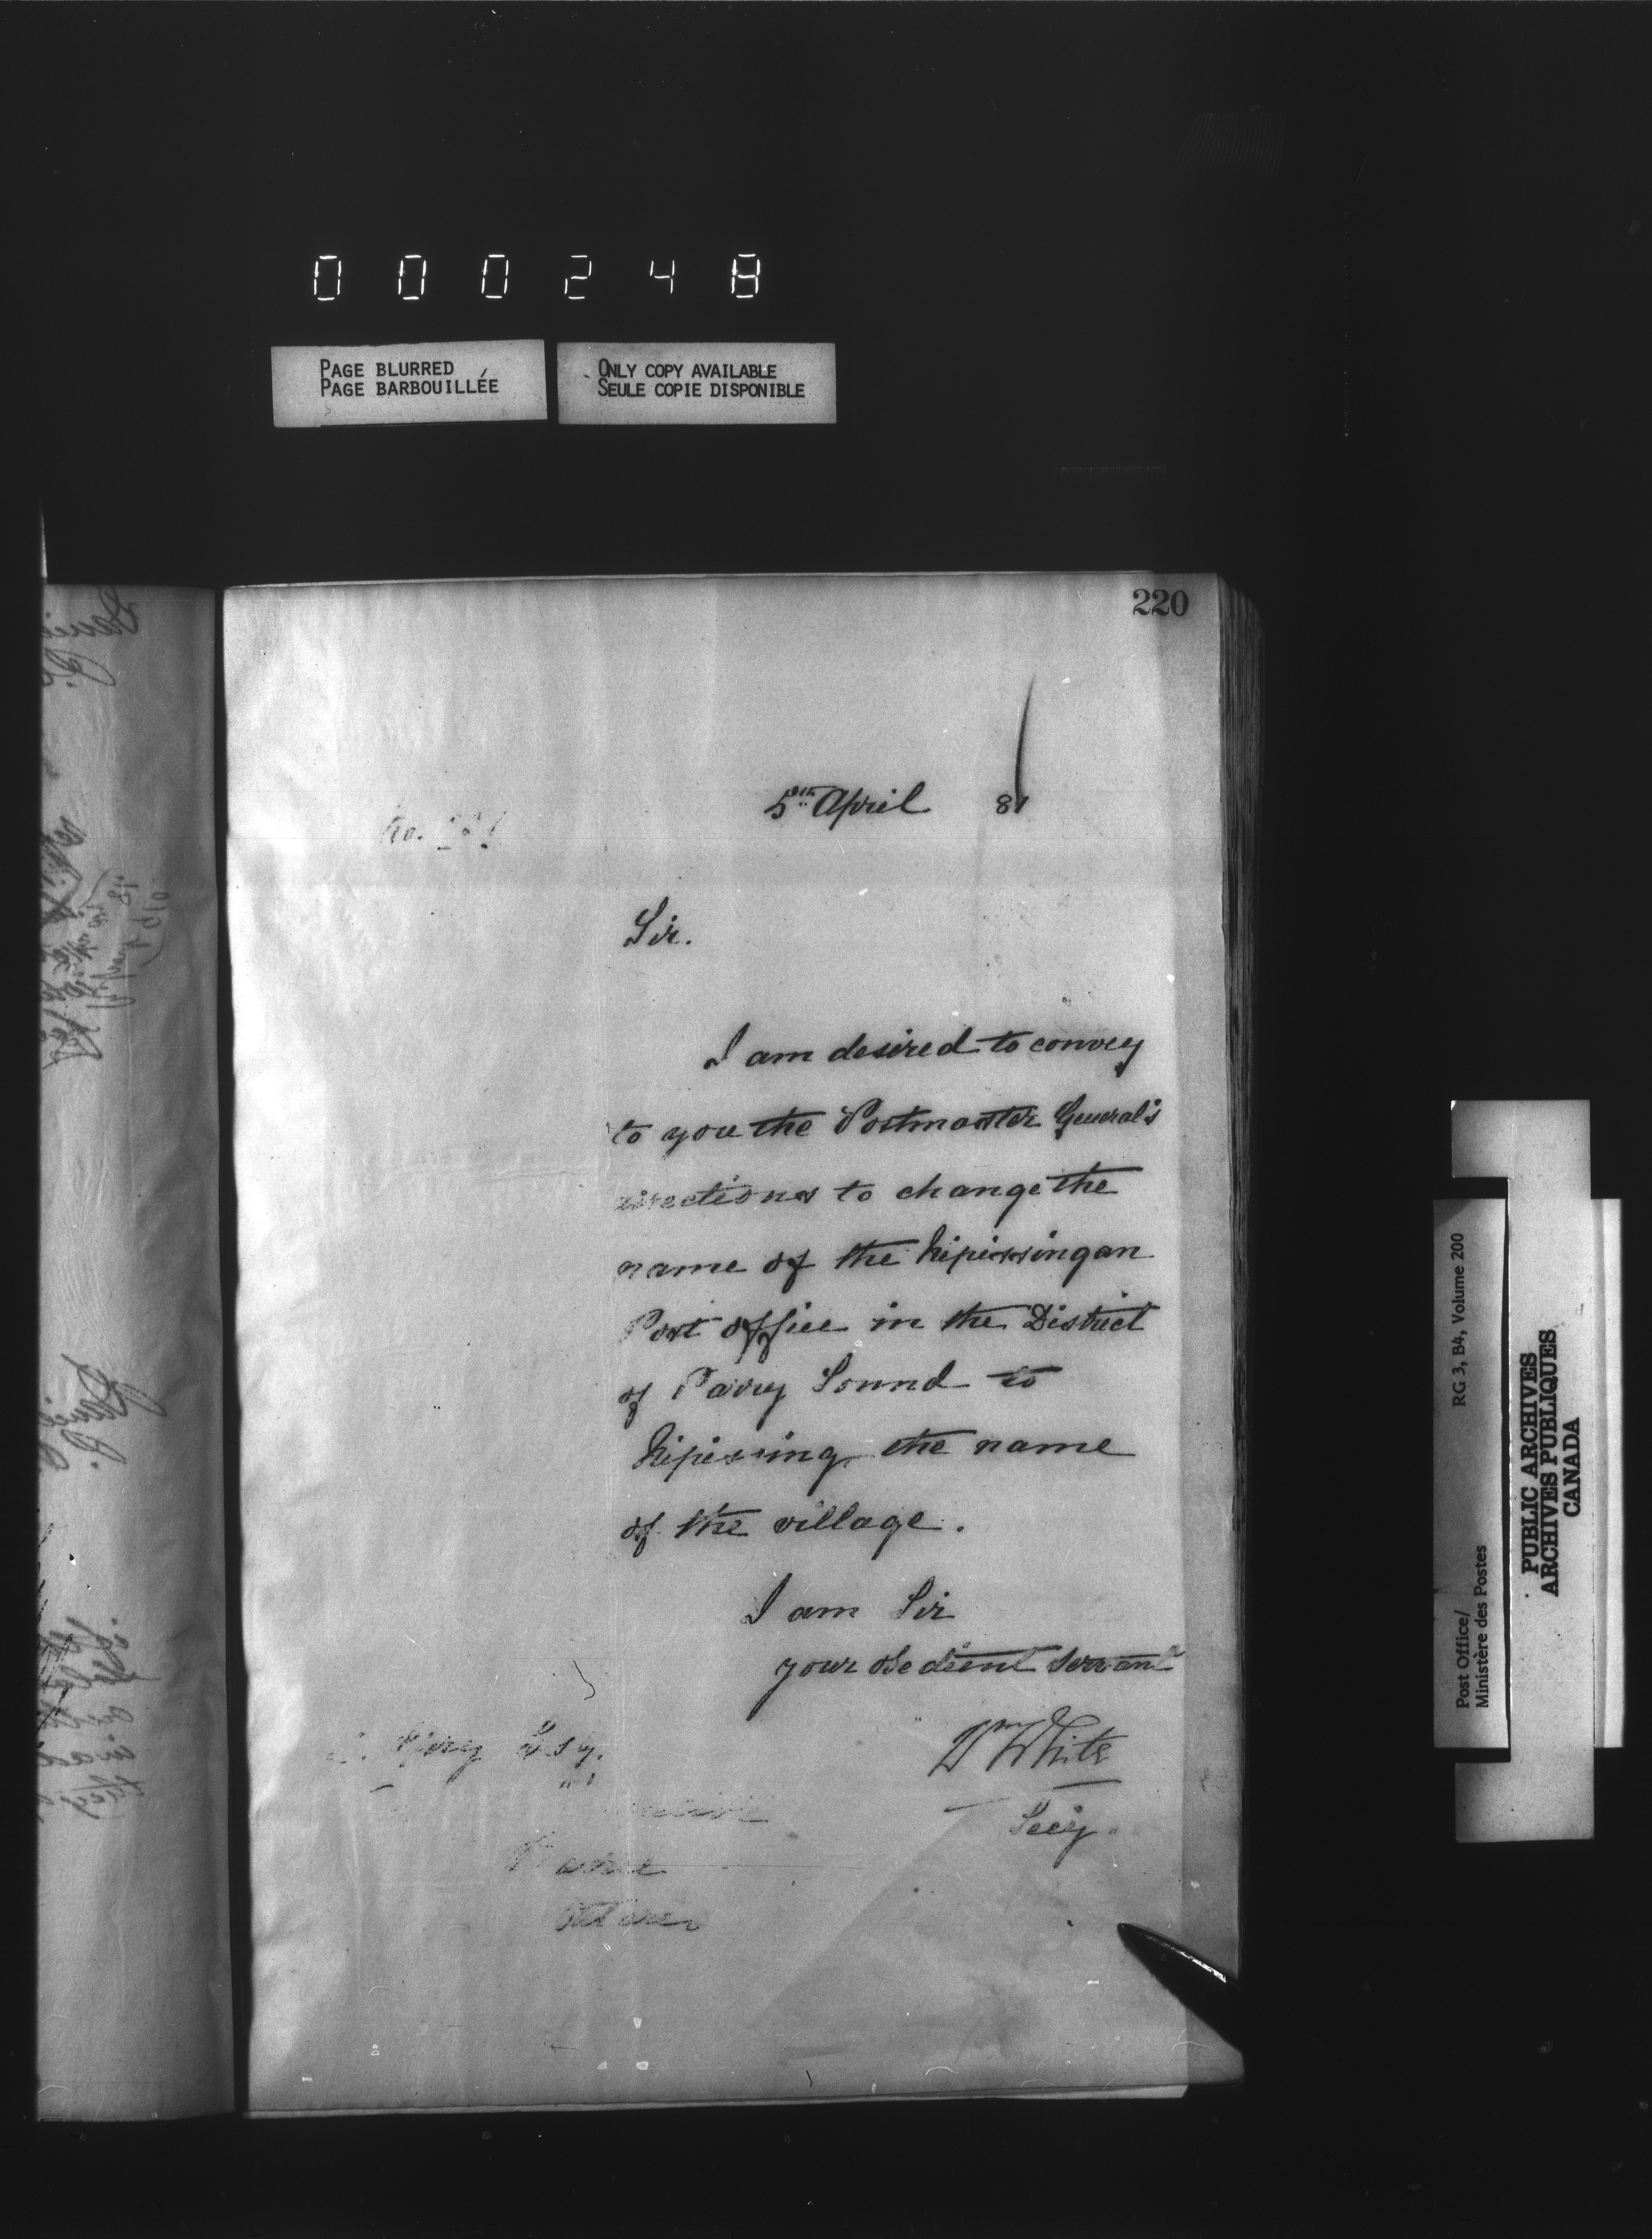 000248
PAGE BLURRED
PAGE BARBOUILLÉE
ONLY COPY AVAILABLE
SEULE COPIE DISPONIBLE
220
5th April 81
No.
Sir.
I am desired to convey
to you the Postmaster General's
directions to change the
name of the Nipissingan
Post office in the District
of Parry Sound to
Nipissing, the name
of the village.
I am Sir
your obedient servant
Wm White
Secy.
Esq.
Post Office/
Ministère des Postes
RG 3, B4, Volume 200
PUBLIC ARCHIVES
ARCHIVES PUBLIQUES
CANADA